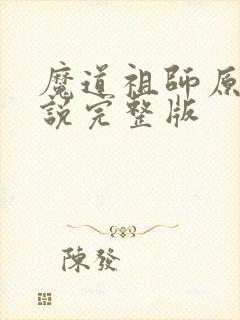 魔道祖師原
說完整版
陳發